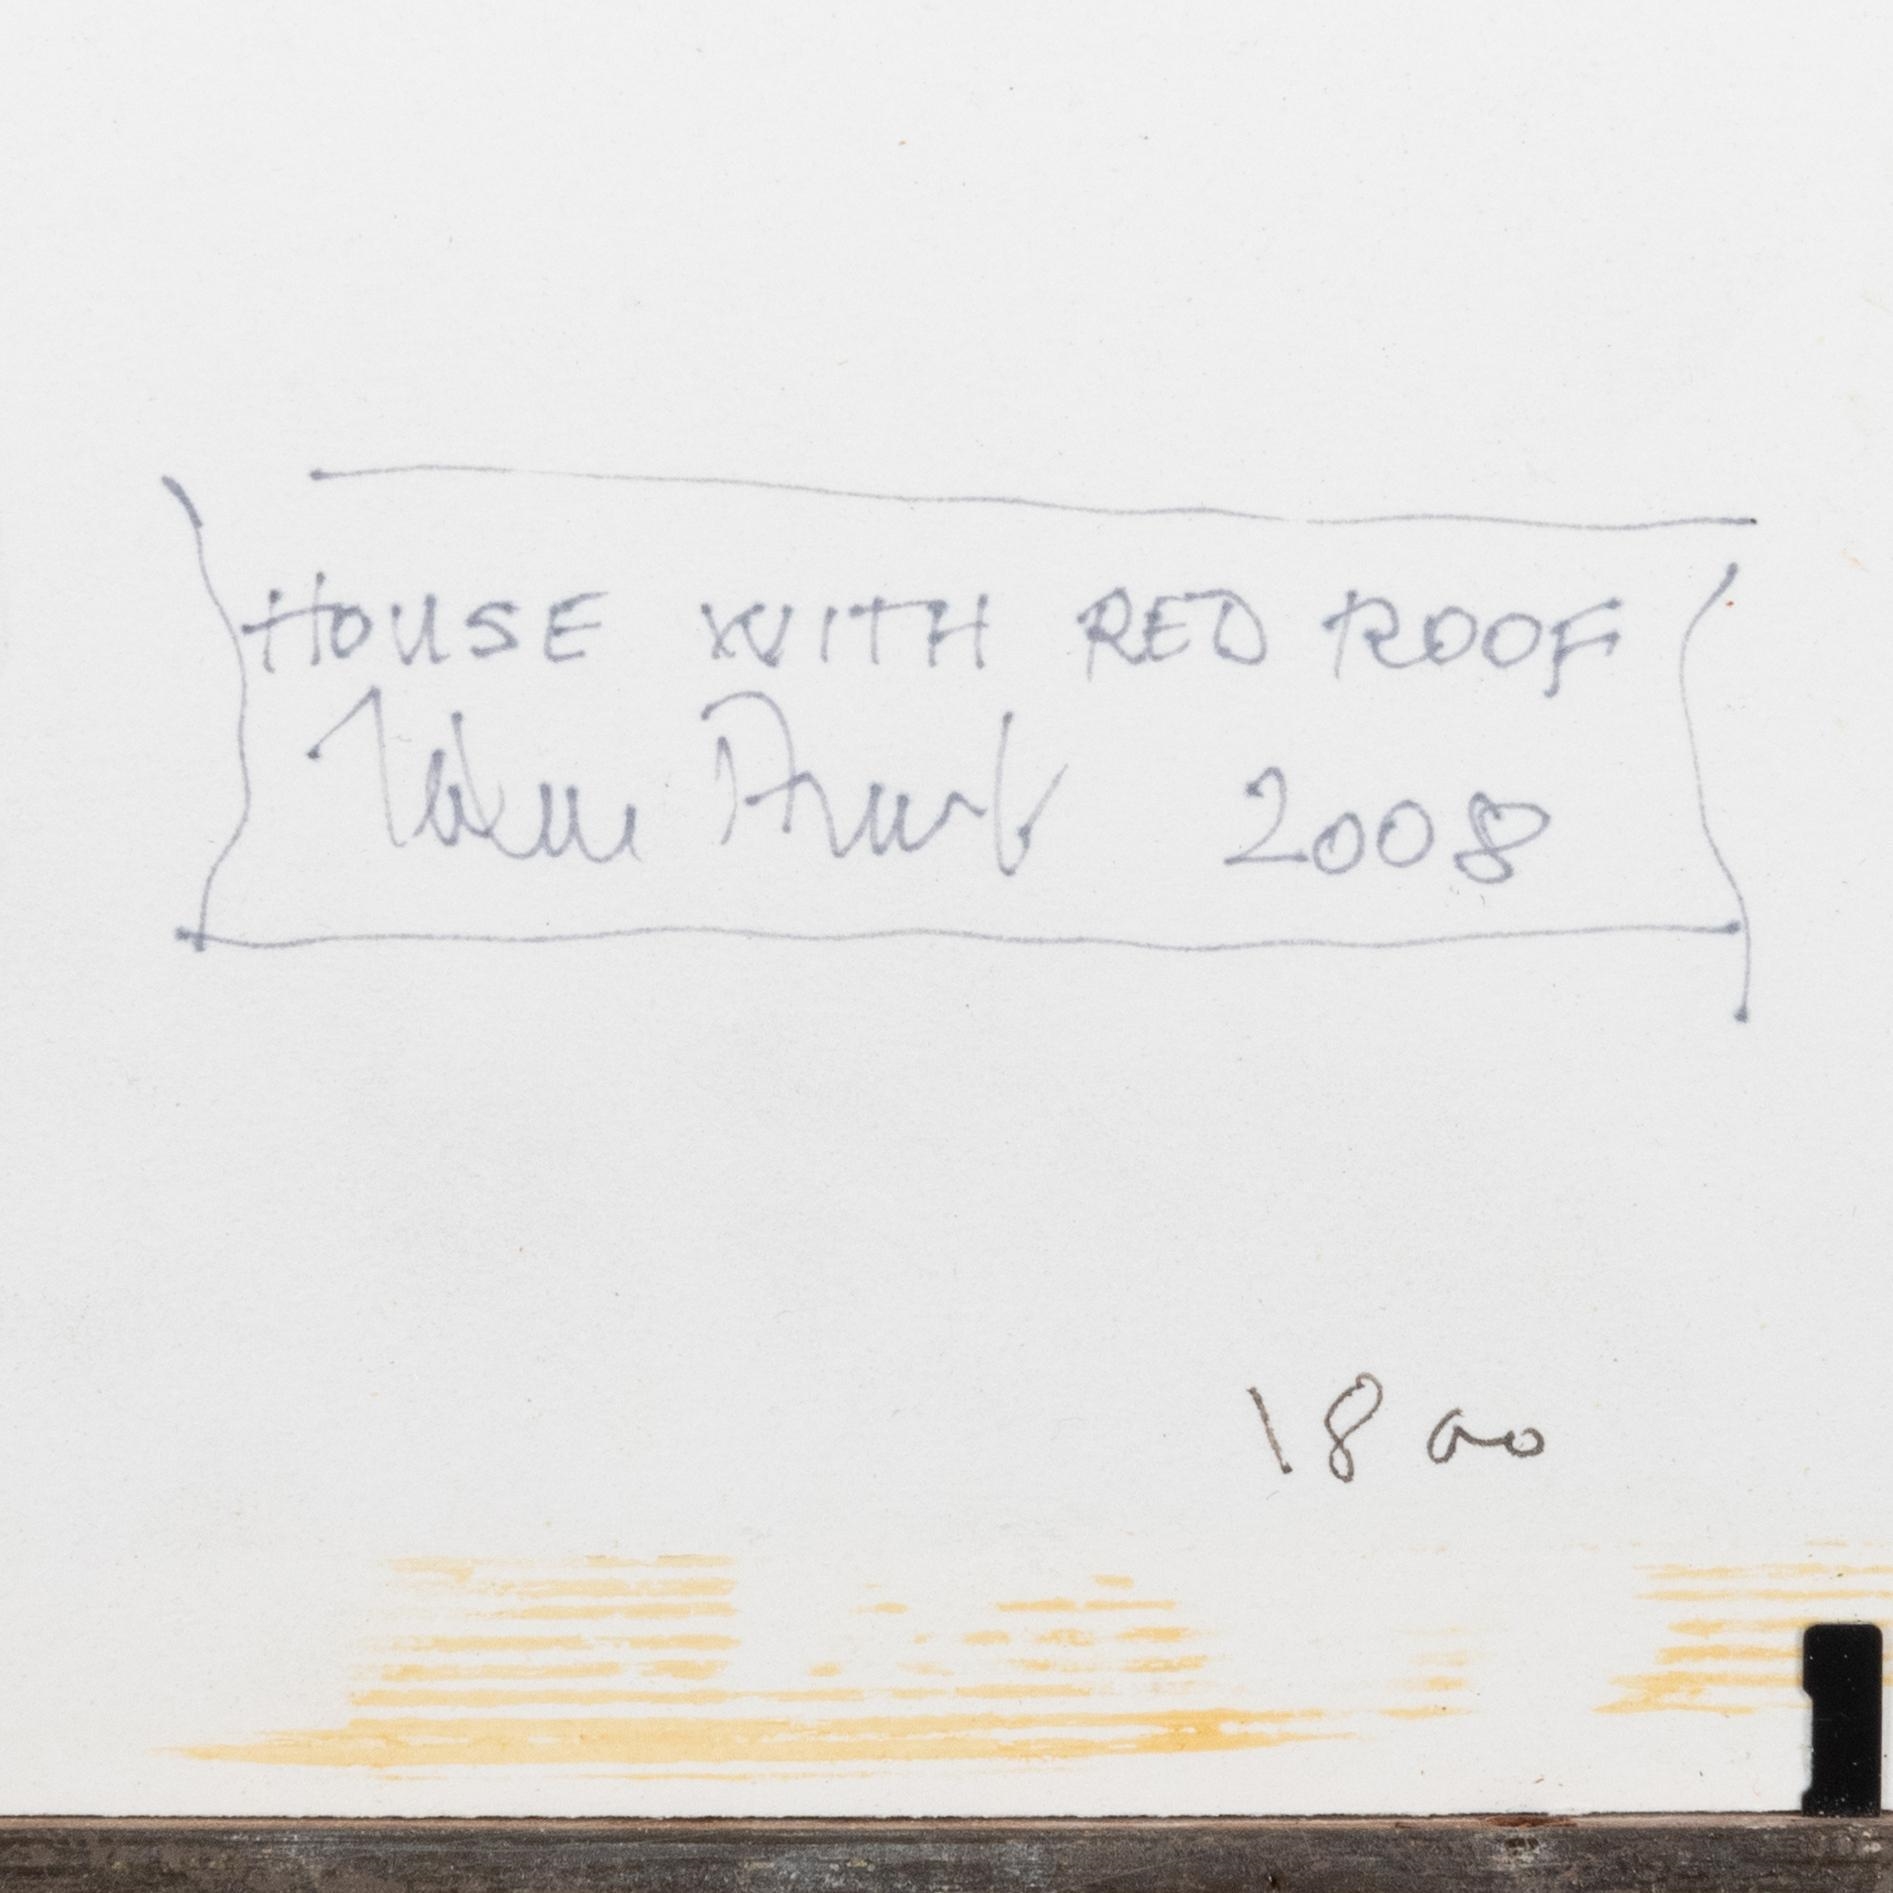 HOUSE WITH RED ROOF
2008
18 00